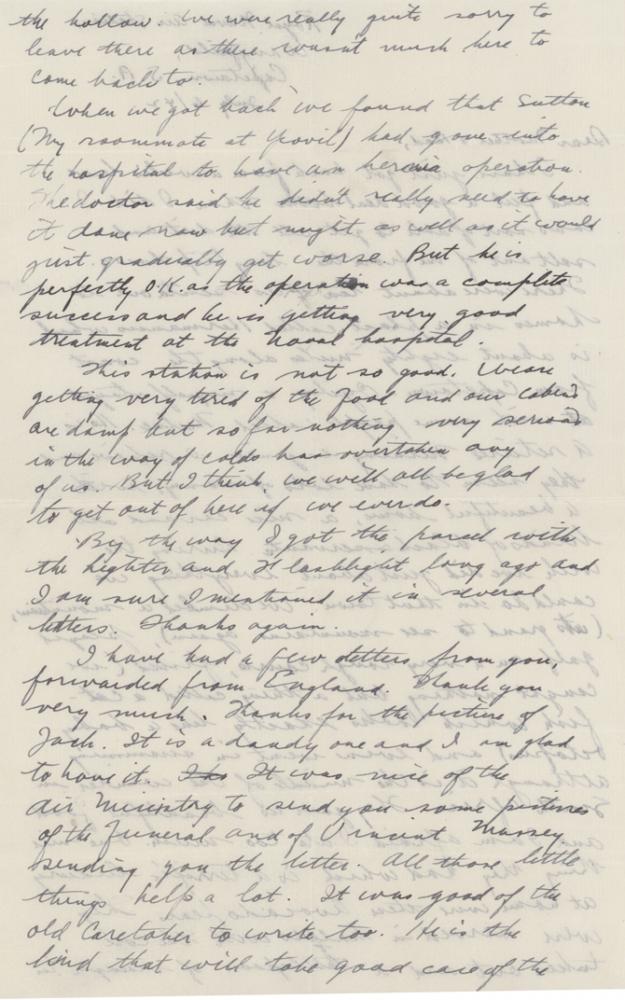 the hollow. We were really quite sorry to
leave there as there wasn't much here to
come back to.
When we got back we found that Sutton
(My roommate at Yeovil) had gone into
the hospital to have an hernia operation.
The doctor said he didn't really need to have
it done now but might as well as it would
just gradually get worse. But he is
perfectly O.K. as the operation was a complete
success and he is getting very good
treatment at the Naval hospital.
This station is not so good. We are
getting very tired of the food and our cabins
are damp but so far nothing very serious
in the way of colds has overtaken any
of us. But I think we will all be glad
to get out of here if we ever do.
By the way I got the parcel with
the lighter and flashlight long ago and
I am sure I mentioned it in several
letters. Thanks again.
I have had a few letters from you,
forwarded from England. Thank you
very much. Thanks for the picture of
Jack. It is a dandy one and I am glad
to have it. It was nice of the
Air Ministry to send you some pictures
of the funeral and of Vincent Massey
sending you the letter. All those little
things help a lot. It was good of the
old Caretaker to write too. He is the
kind that will take good care of the